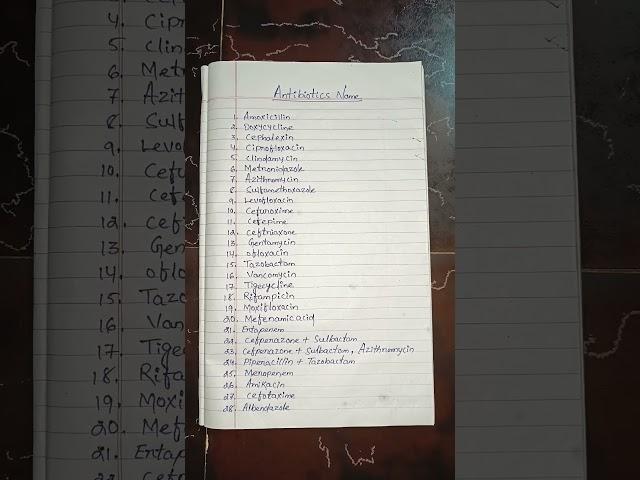 Antibiotics Name
1. Amoxicillin
2. Doxycycline
3. Cephalexin
4. Ciprofloxacin
5. Clindamycin
6. Metronidazole
7. Azithromycin
8. Sulfamethoxazole
9. Levofloxacin
10. Cefuroxime
11. Cefepime
12. Ceftriaxone
13. Gentamycin
14. Ofloxacin
15. Tazobactam
16. Vancomycin
17. Tigecycline
18. Rifampicin
19. Moxifloxacin
20. Mefenamic acid
21. Ertapenem
22. Cefperazone + Sulbactam
23. Cefperazone + Sulbactam, Azithromycin
24. Piperacillin + Tazobactam
25. Meropenem
26. Amikacin
27. Cefotaxime
28. Albendazole